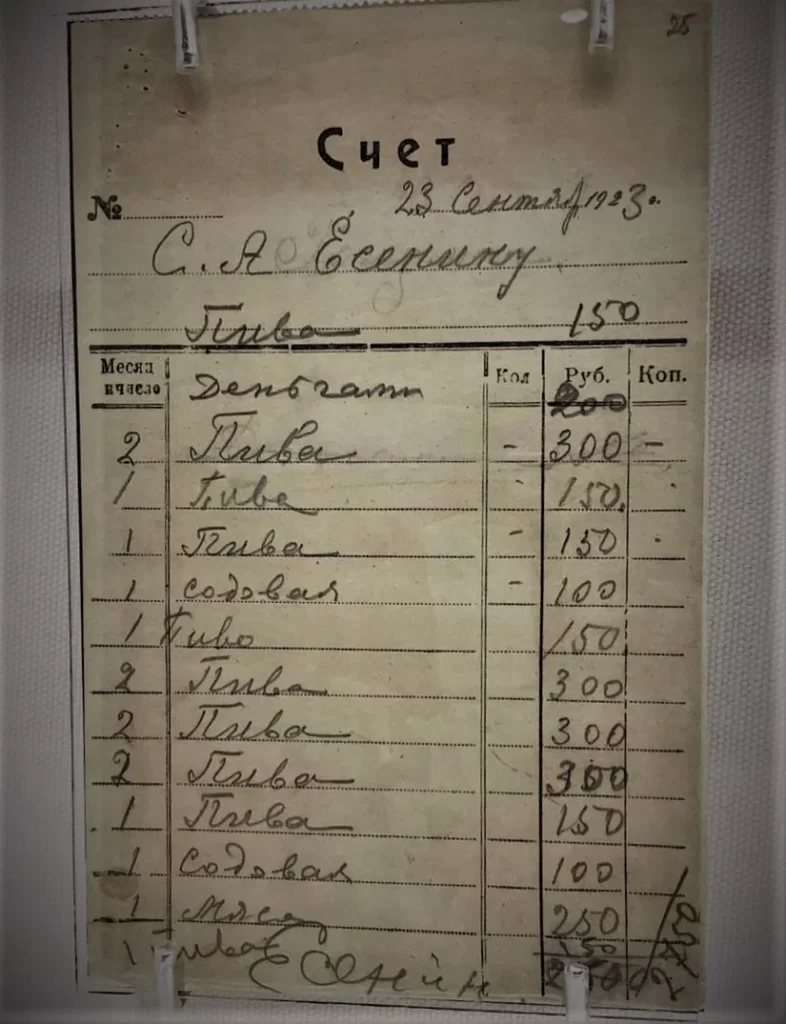 25
Счет
№ 23 Сентяб 1923 г.
С. А Есенину
Пива 150
Месяц и число Деньгами Кол Руб. Коп.
200
2 Пива - 300 -
1 Пива - 150
1 Пива - 150
1 содовая - 100
1 Пиво 150
2 Пива 300
2 Пива 300
2 Пива 300
1 Пива 150
1 Содовая 100
1 Мяса 250
1 Пива 150
Есенин